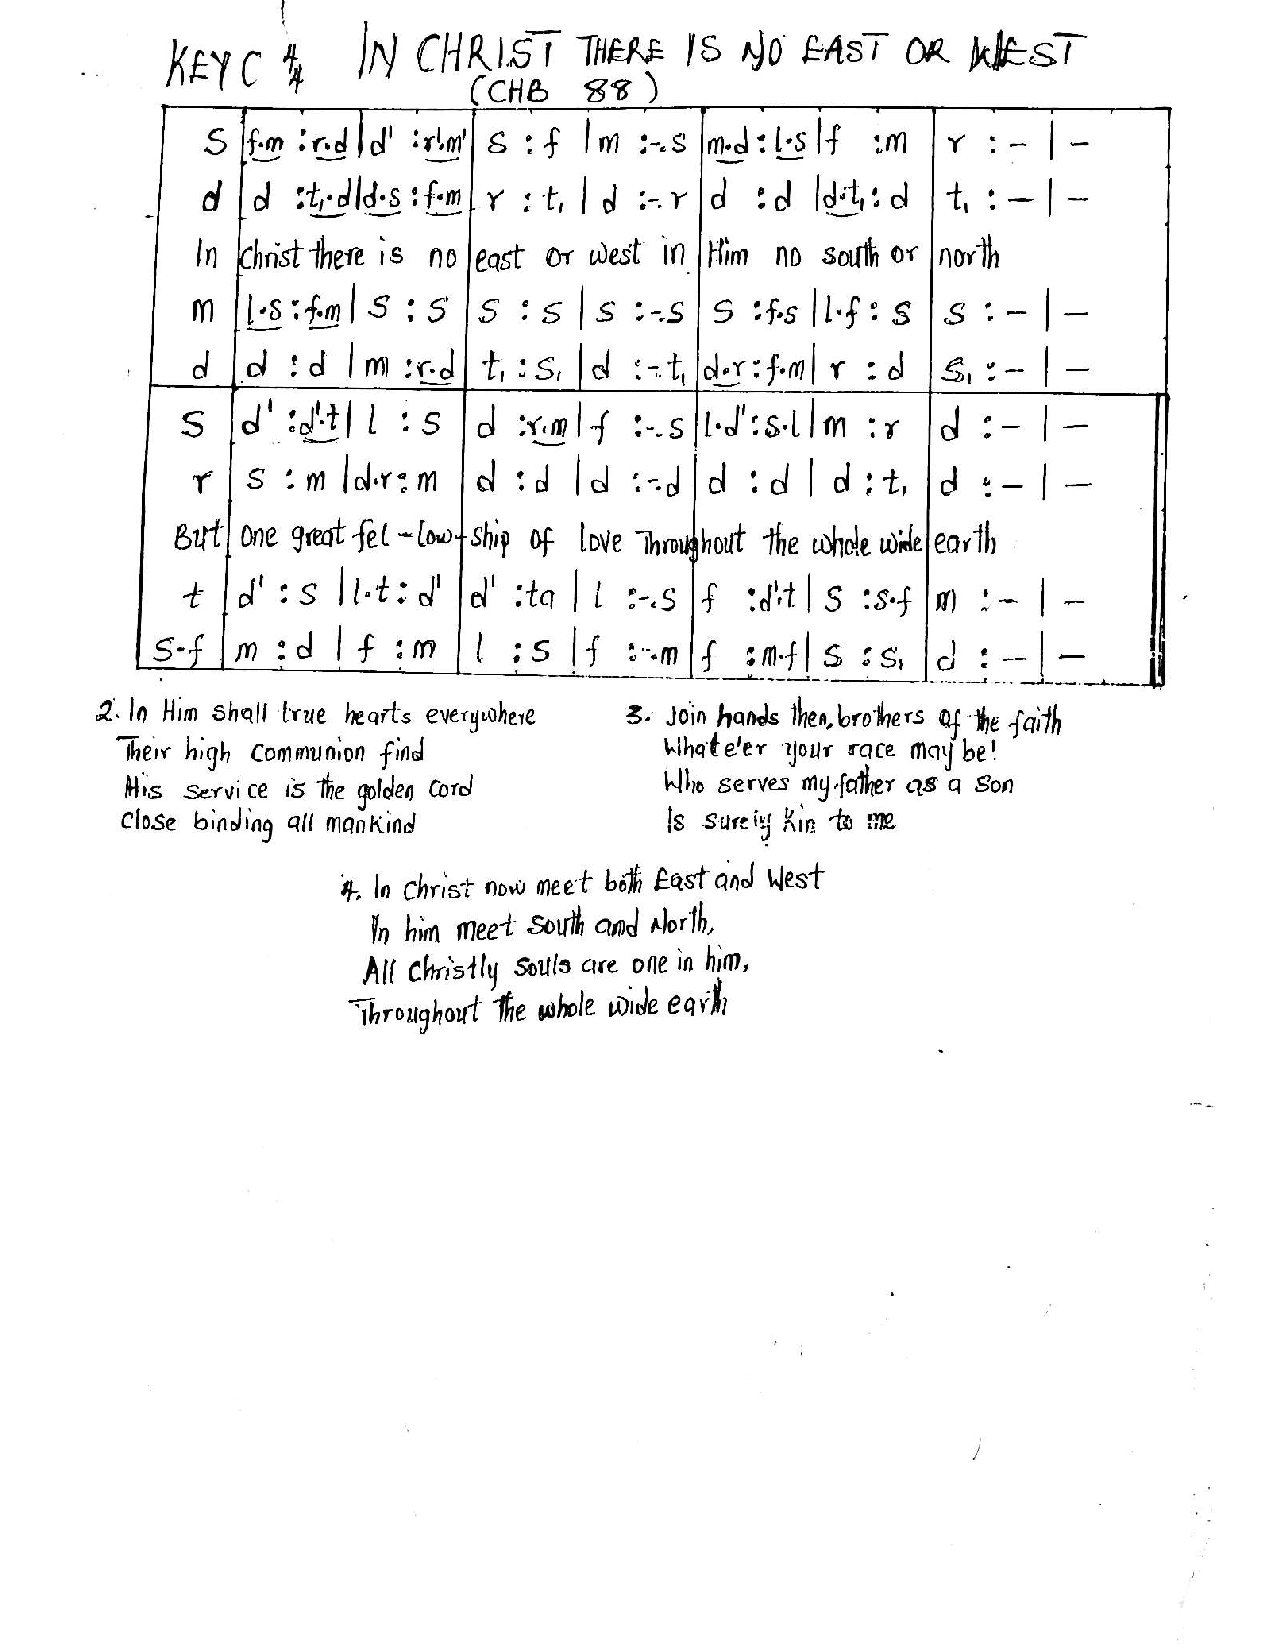 KEY C 4/4 IN CHRIST THERE IS NO EAST OR WEST
(CHB 88)
S | f.m :r.d | d' :r'.m' | s :f | m :-.s | m.d :l.s | f :m | r :- | -
d | d :t₁.d | d.s :f.m | r :t₁ | d :-.r | d :d | d.t₁ :d | t₁ :- | -
In Christ there is no east or west in Him no south or north
m | l.s :f.m | s :s | s :s | s :-.s | s :f.s | l.f :s | s :- | -
d | d :d | m :r.d | t₁ :s₁ | d :-.t₁ | d.r :f.m | r :d | s₁ :- | -
S | d' :d'.t | l :s | d :r.m | f :-.s | l.d' :s.l | m :r | d :- | -
r | s :m | d.r :m | d :d | d :-.d | d :d | d :t₁ | d :- | -
But one great fel-low-ship of love Throughout the whole wide earth
t | d' :s | l.t :d' | d' :ta | l :-.s | f :d'.t | s :s.f | m :- | -
s.f | m :d | f :m | l :s | f :-.m | f :m.f | s :s₁ | d :- | -
2. In Him shall true hearts everywhere
Their high communion find
His service is the golden cord
Close binding all mankind
3. Join hands then, brothers of the faith
Whate'er your race may be!
Who serves my father as a son
Is surely kin to me
4. In Christ now meet both East and West
In him meet South and North,
All Christly souls are one in him,
Throughout the whole wide earth